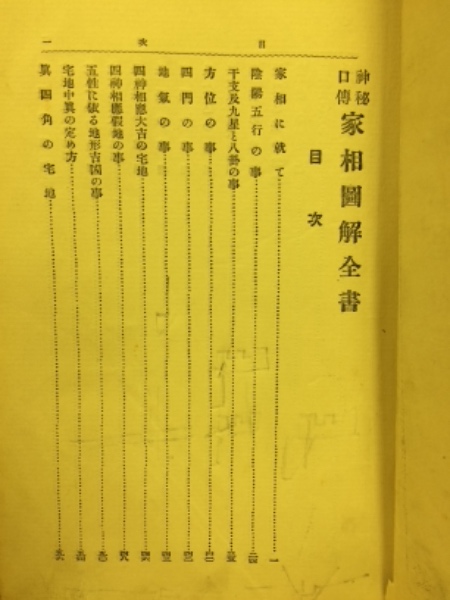 神秘口傳 家相圖解全書
目次
家相に就て
陰陽五行の事
干支及九星と八卦の事
方位の事
四門の事
地氣の事
四神相應大吉の宅地
四神相應假地の事
五性に依る地形吉凶の事
宅地中眞の定め方
眞四角の宅地
目次 一